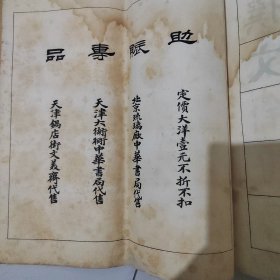 助賑專品
定價大洋壹元不折不扣
北京琉璃廠中華書局代售
天津大衚衕中華書局代售
天津鍋店街文美齋代售